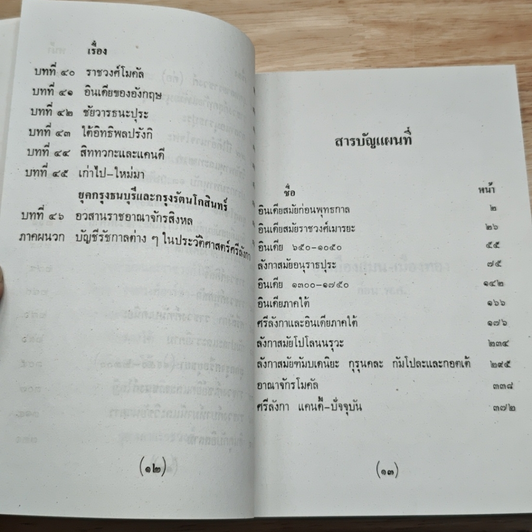 เรื่อง
บทที่ ๔๐ ราชวงศ์โมคัล
บทที่ ๔๑ อินเดียของอังกฤษ
บทที่ ๔๒ ชัยวารธนะปุระ
บทที่ ๔๓ ใต้อิทธิพลปรังกิ
บทที่ ๔๔ สิททวกะและแคนดี
บทที่ ๔๕ เก่าไป-ใหม่มา
ยุคกรุงธนบุรีและกรุงรัตนโกสินทร์
บทที่ ๔๖ อวสานราชอาณาจักรสิงหล
ภาคผนวก บัญชีรัชกาลต่าง ๆ ในประวัติศาสตร์ศรีลังกา
(๑๒)
สารบัญแผนที่
ชื่อ หน้า
อินเดียสมัยก่อนพุทธกาล ๒
อินเดียสมัยราชวงศ์เมารยะ ๒๖
อินเดีย ๖๕๐-๑๐๕๐ ๕๕
ลังกาสมัยอนุราธปุระ ๗๕
อินเดีย ๑๓๐๐-๑๗๕๐ ๑๔๒
อินเดียภาคใต้ ๑๖๖
ศรีลังกาและอินเดียภาคใต้ ๑๗๖
ลังกาสมัยโปโลนนรุวะ ๒๓๔
ลังกาสมัยฑัมบเดนิยะ กุรุนคละ กัมโปละและกอตเต้ ๒๙๕
อาณาจักรโมคัล ๓๓๘
ศรีลังกา แคนดี-ปัจจุบัน ๓๗๒
(๑๓)